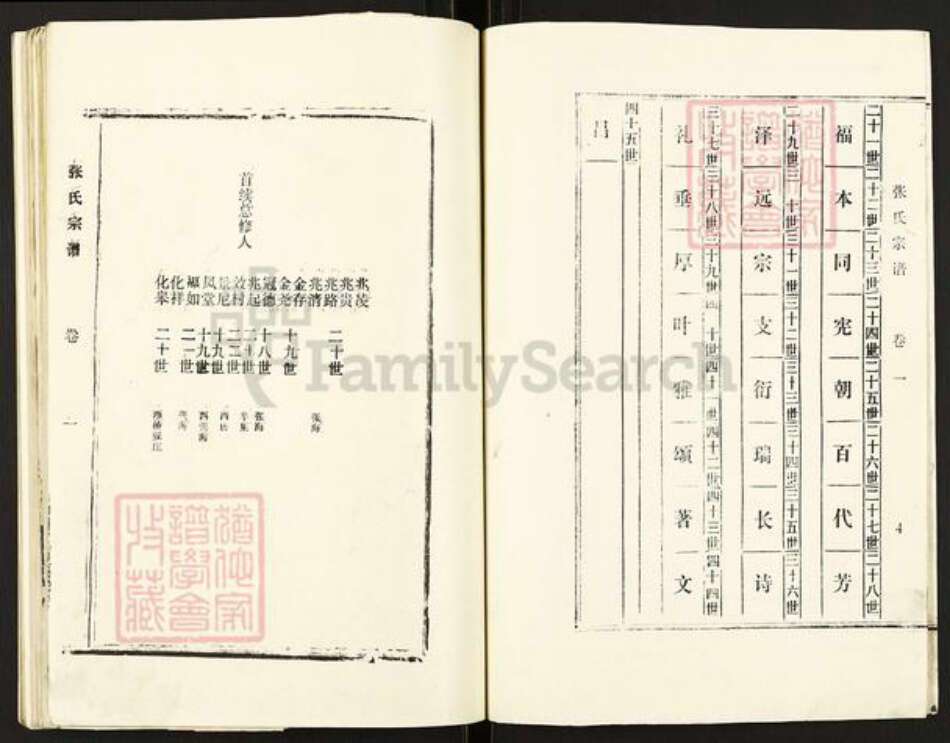 张氏宗谱 卷一 4
二十一世 二十二世 二十三世 二十四世 二十五世 二十六世 二十七世 二十八世
福 本 同 宪 朝 百 代 芳
二十九世 三十世 三十一世 三十二世 三十三世 三十四世 三十五世 三十六世
泽 远 宗 支 衍 瑞 长 诗
三十七世 三十八世 三十九世 四十世 四十一世 四十二世 四十三世 四十四世
礼 垂 厚 叶 雅 颂 著 文
四十五世
昌
首续总修人
兆凌
兆贵
兆路 二十世
兆济 张海
金存
金尧 十九世
冠德 十八世 张海
兆起 二十世
效村 二二世
景尼 十九世
凤堂 十九世
如 二一世
化祥
化峯 二十世
张氏宗谱 卷一
猶他家譜學會收藏
猶他家譜學會收藏
FamilySearch